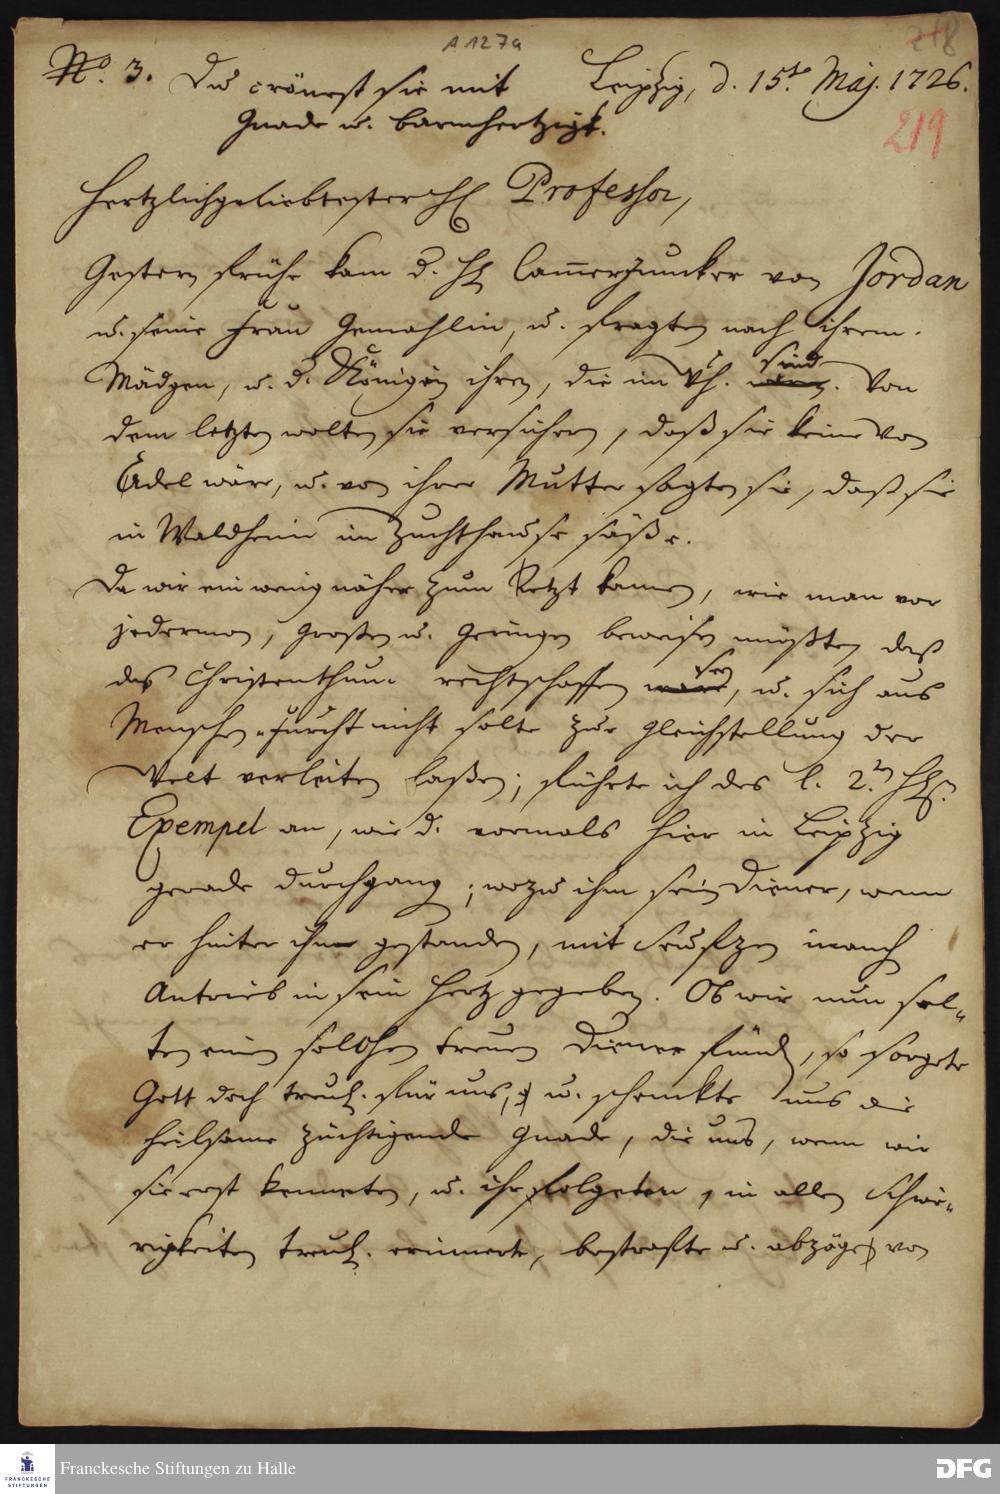 A 127a
218
N.º 3. Du crönest sie mit Leipzig, d. 15.t. Maj. 1726.
Gnade u. barmhertzigk.
219
Hertzlichgeliebtester H Professor,
Gestern frühe kam d. H Cammerjuncker von Jordan
u. seine Frau Gemahlin, u. fragten nach ihrem
Mädgen, u. d. Königin ihren, die im sind. Von
dem letzten wolten sie versichern, daß sie keine von
Adel wäre, u. von ihrer Mutter sagten sie, daß sie
in Waldheim im Zuchthause säße.
Da wir ein wenig näher zum kamen, wie man vor
jederman, Großen u. Geringen beweisen müßten daß
das Christenthum rechtschaffen sey, u. sich aus
Menschen-furcht nicht solte zur gleichstellung der
Welt verleiten laßen; führte ich des l. 2.ten
Exempel an, wie d. vormals hier in Leipzig
gerade durchgang; wozu ihm sein Diener, wenn
er hinter ihm gestanden, mit Seufzen manch
Antrieb in sein Hertz gegeben. Ob wir nun sel-
ten einen solchen treuen Diener finden, so sorgete
Gott doch treul. für uns, u. schenckte uns die
heilsame züchtigende Gnade, die uns, wenn wir
sie erst kenneten, u. ihr folgeten, in allen Schwie-
rigkeiten treul. erinnerte, bestrafte u. abzöge von
Franckesche Stiftungen zu Halle
FRANCKESCHE
STIFTUNGEN
DFG